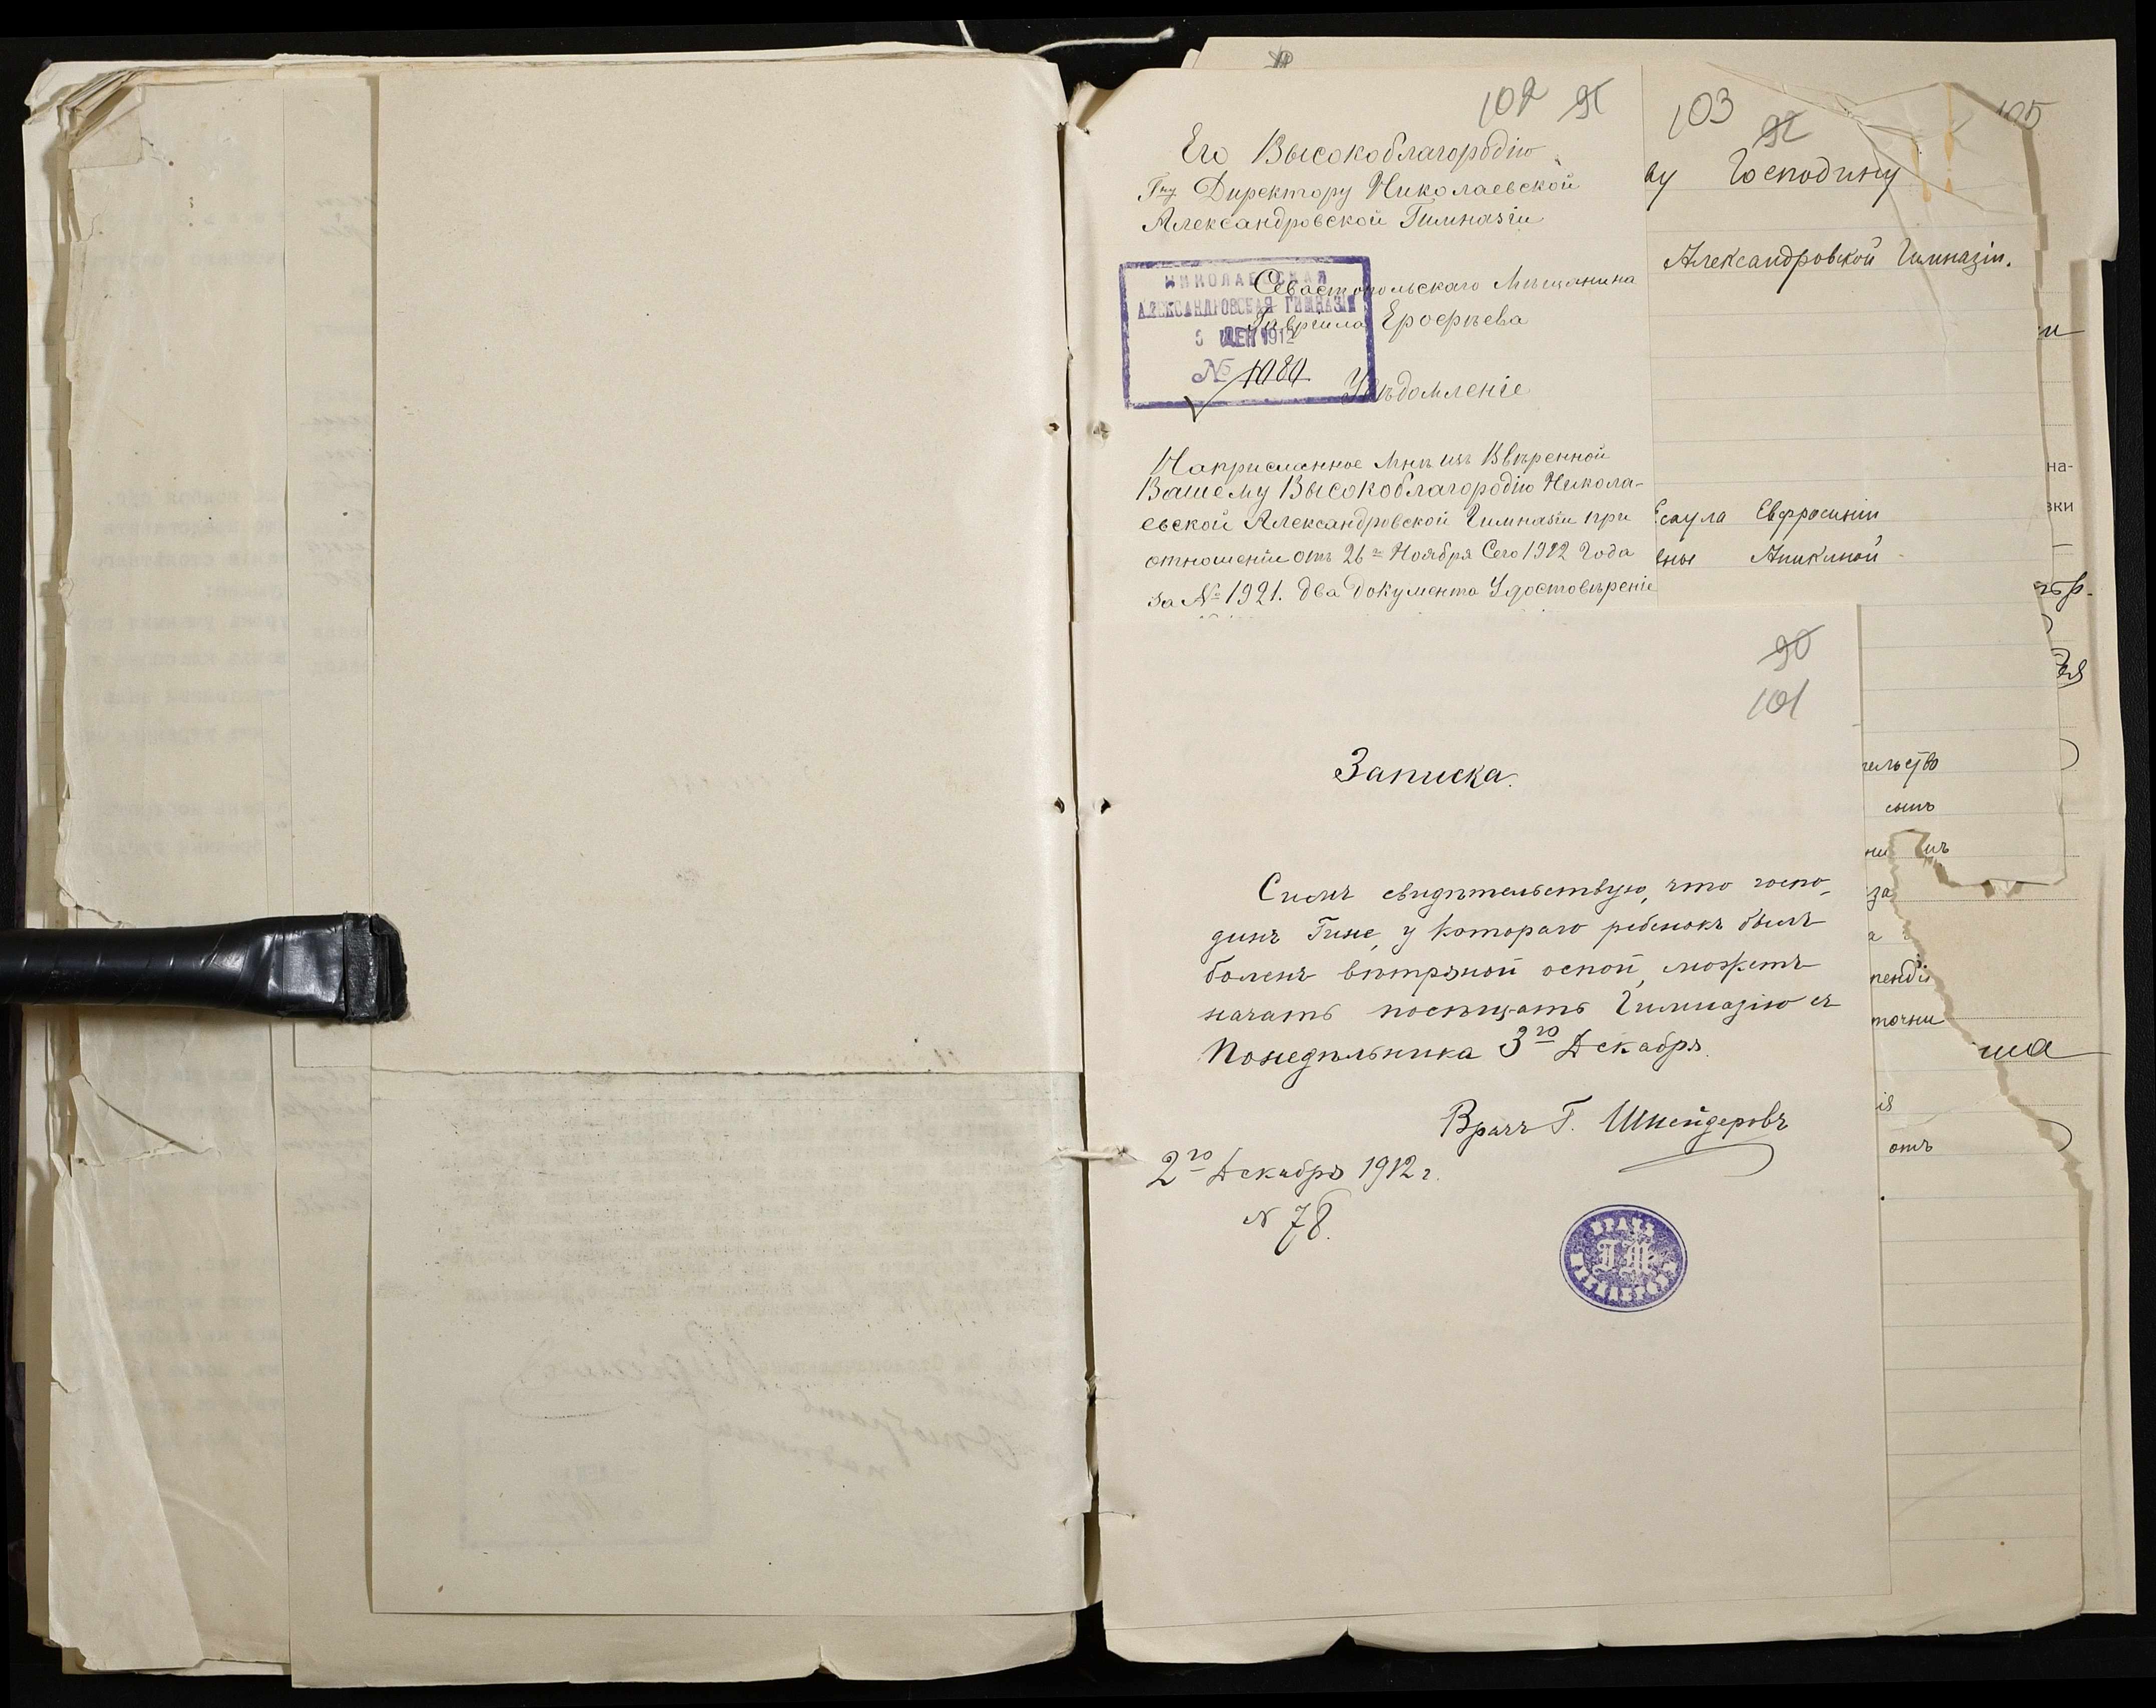 102 91
Его Высокоблагородію
Гну Директору Николаевской
Александровской Гимназіи
НИКОЛАЕВСКАЯ
АЛЕКСАНДРОВСКАЯ ГИМНАЗІЯ
ДЕК 1912
№ 1080
Севастопольскаго Мѣщанина
Гаврила Ерофѣева
Увѣдомленіе
Наприсланное Мнѣ изъ Ввѣренной
Вашему Высокоблагородію Никола-
евской Александровской Гимназіи при
отношеніи отъ 26го Ноября Сего 1912 Года
за № 1921. два Документа Удостовѣреніе
103 92
ву Господину
Александровской Гимназіи.
Есаула Евфросиніи
вны Аникиной
105
на-
зки
90
101
Записка.
Симъ свидѣтельствую, что госпо-
динъ Гине, у котораго ребенокъ былъ
боленъ вѣтряной оспой, можетъ
начать посѣщать Гимназію съ
Понедѣльника 3го Декабря.
Врачъ Г. Шнейдеровъ
2го Декабря 1912 г.
N 78.
ВРАЧЪ
Г.М.
тельство
сынъ
за
а
пенді
точни
ша
ія
отъ